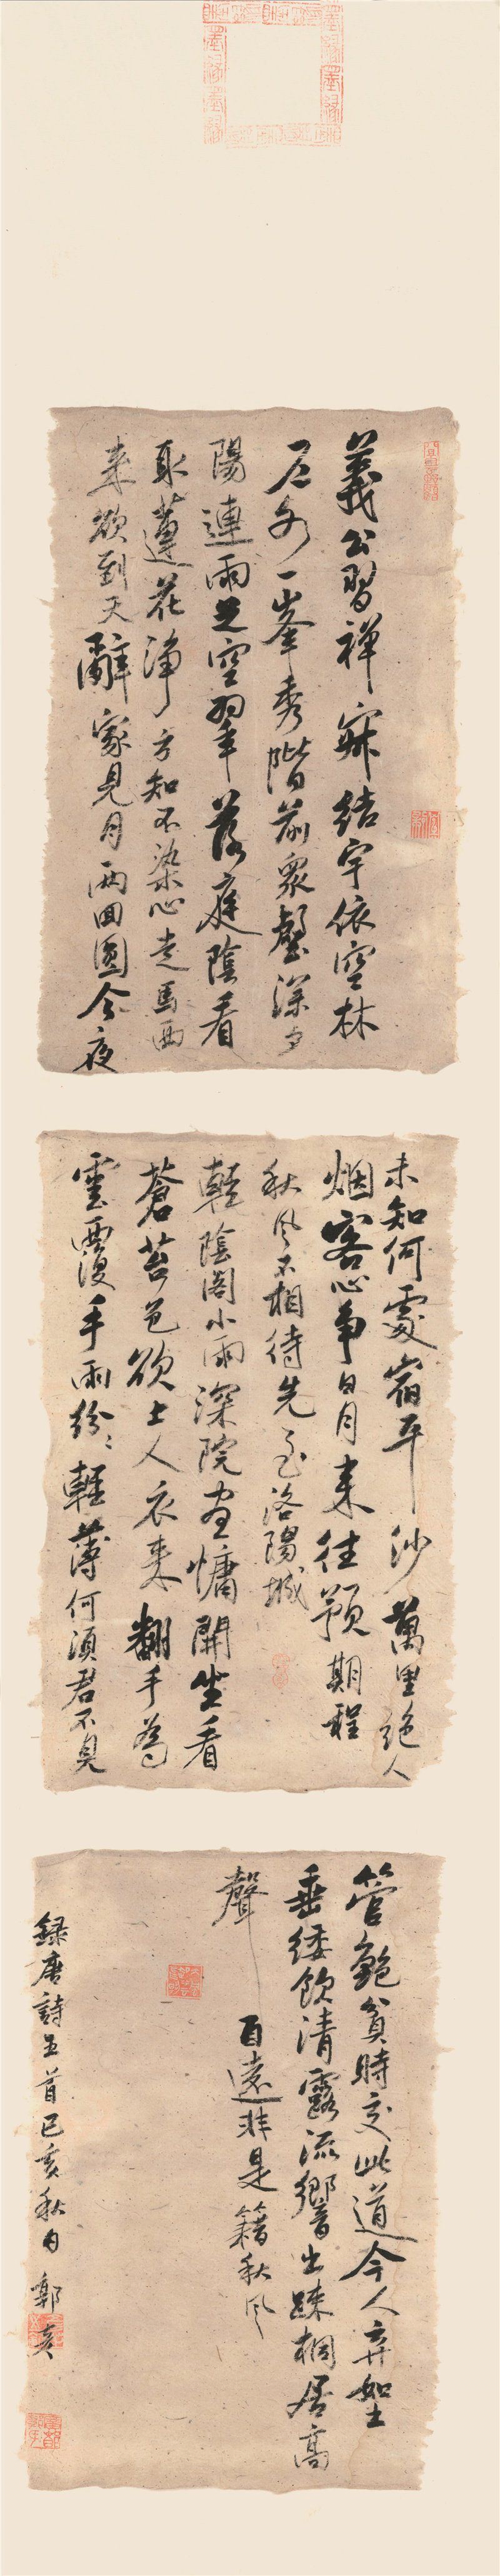 義公習禪寂結宇依空林
戶外一峯秀階前衆壑深夕
陽連雨足空翠落庭陰看
取蓮花淨方知不染心走馬西
來欲到天辭家見月兩回圓今夜
未知何處宿平沙萬里絕人
烟客心爭日月來往預期程
秋風不相待先至洛陽城
輕陰閣小雨深院晝慵開坐看
蒼苔色欲上人衣來翻手為
雲覆手雨紛々輕薄何須君不見
管鮑貧時交此道今人棄如土
垂緌飲清露流響出疎桐居高
聲自遠非是籍秋風
錄唐詩五首己亥秋月郭